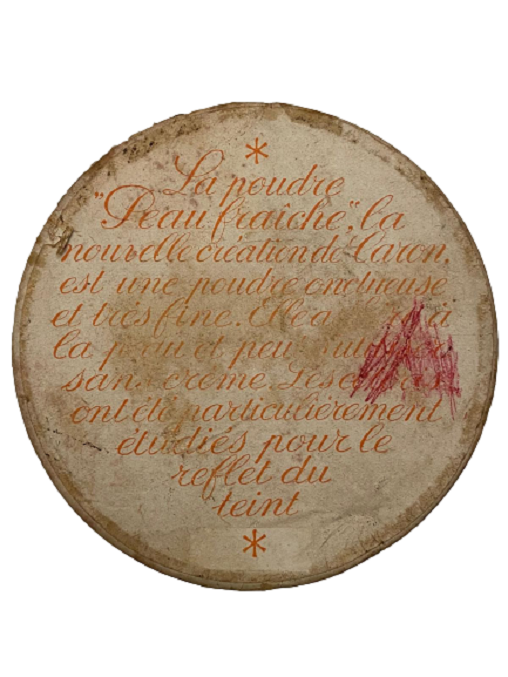 *
La poudre
"Peau fraîche", la
nouvelle création de Caron,
est une poudre onctueuse
et très fine. Elle a à
la peau et peu
sans crème. Les
ont été particulièrement
étudiés pour le
reflet du
teint
*